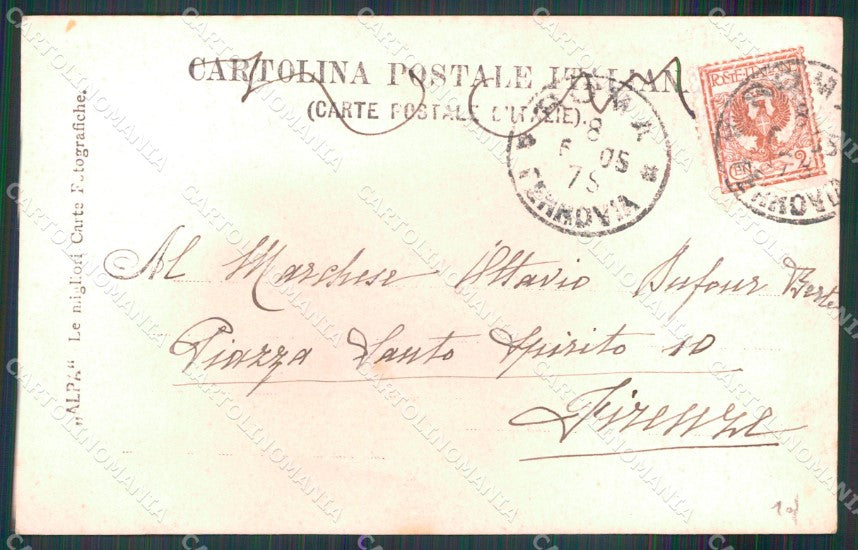 CARTOLINA POSTALE ITALIAN
(CARTE POSTALE D'ITALIE).
ROMA
FERROVIA
8
5 05
7S
POSTE ITALIANE
2
„ALPA“ Le migliori Carte Fotografiche.
Al Marchese Ottavio Dufour Berte
Piazza Santo Spirito 10
Firenze
CARTOLINOMANIA